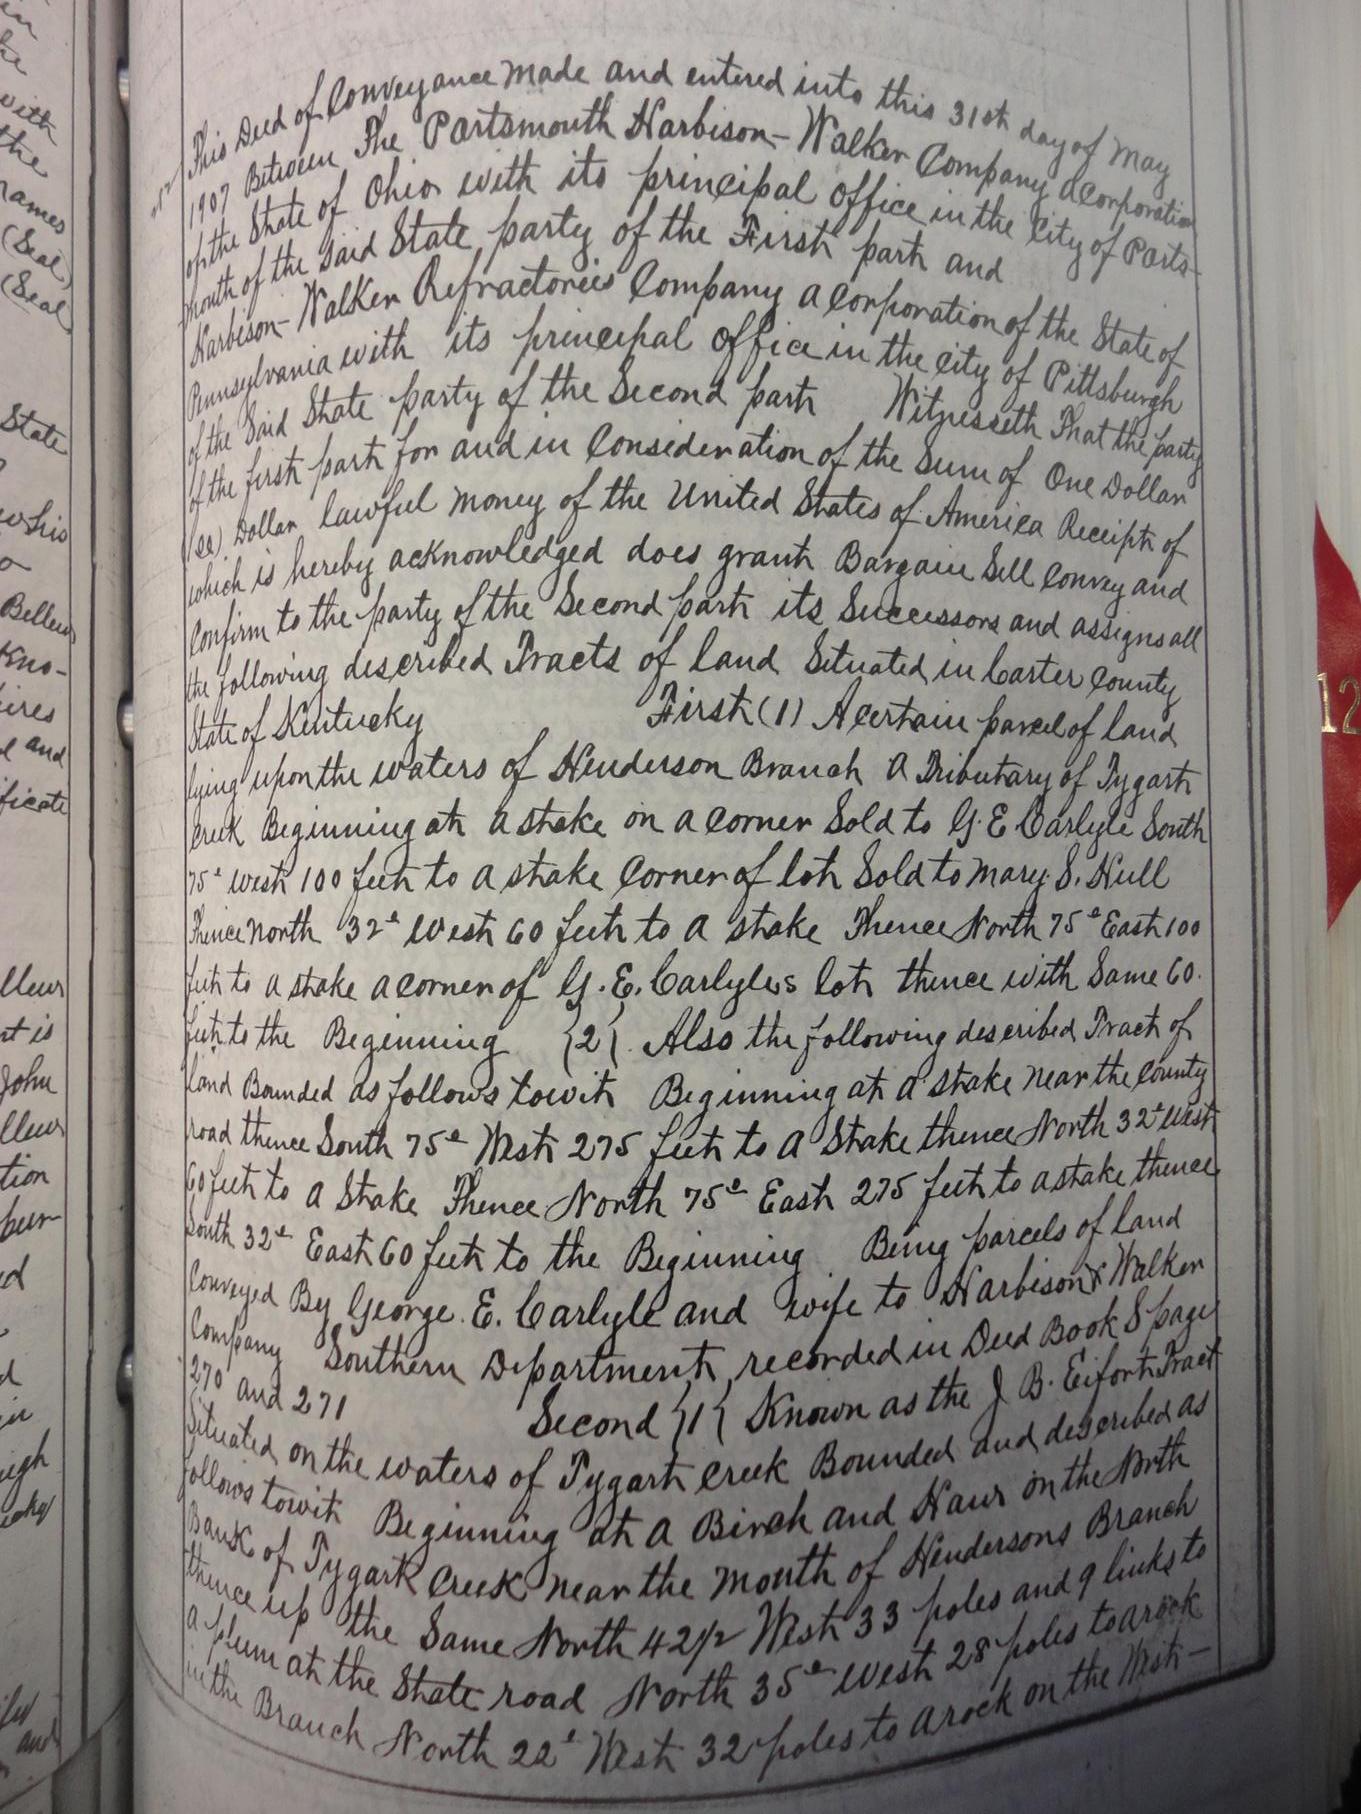 in
he
with
the
names
(Seal)
(Seal
State
who his
o
Bellew
Kno-
ires
and
ificate
llew
nt is
John
llew
tion
bur-
ed
d
in
igh
and
This Deed of Conveyance Made and entered into this 31st day of May
1907 Between The Partsmouth Harbison-Walker Company a corporation
of the State of Ohio with its principal office in the City of Parts-
mouth of the said State party of the First part and
Harbison-Walker Refractories Company a corporation of the State of
Pennsylvania with its principal office in the city of Pittsburgh
of the Said State party of the Second part Witnesseth That the party
of the first part for and in Consideration of the Sum of One Dollar
Dollar lawful money of the United States of America Receipt of
which is hereby acknowledged does grant Bargain Sell Convey and
Confirm to the party of the Second part its Successors and assigns all
the following described Tracts of land Situated in Carter County
State of Kentucky First (1) A certain parcel of land
lying upon the waters of Henderson Branch a Tributary of Tygart
Creek Beginning at a stake on a corner Sold to G. E Carlyle South
75° West 100 feet to a stake Corner of lot Sold to Mary S. Hull
Thence North 32° West 60 feet to a stake Thence North 75° East 100
feet to a stake a corner of G. E. Carlyles lot thence with Same 60
feet to the Beginning {2} Also the following described Tract of
land Bounded as follows towit Beginning at a stake near the County
road thence South 75° West 275 feet to a Stake thence North 32° West
60 feet to a Stake Thence North 75° East 275 feet to a stake thence
South 32° East 60 feet to the Beginning Being parcels of land
Conveyed By George. E. Carlyle and wife to Harbison & Walker
Company Southern Department, recorded in Deed Book 8 page
270 and 271 Second {1} Known as the J B. Eifort Tract
Situated on the waters of Tygart Creek Bounded and described as
follows towit Beginning at a Birch and Haws on the North
Bank of Tygart Creek near the mouth of Hendersons Branch
thence up the Same North 42 1/2 West 33 poles and 9 links to
a plum at the State road North 35° West 28 poles to a rock
in the Branch North 22° West 32 poles to a rock on the West-
12